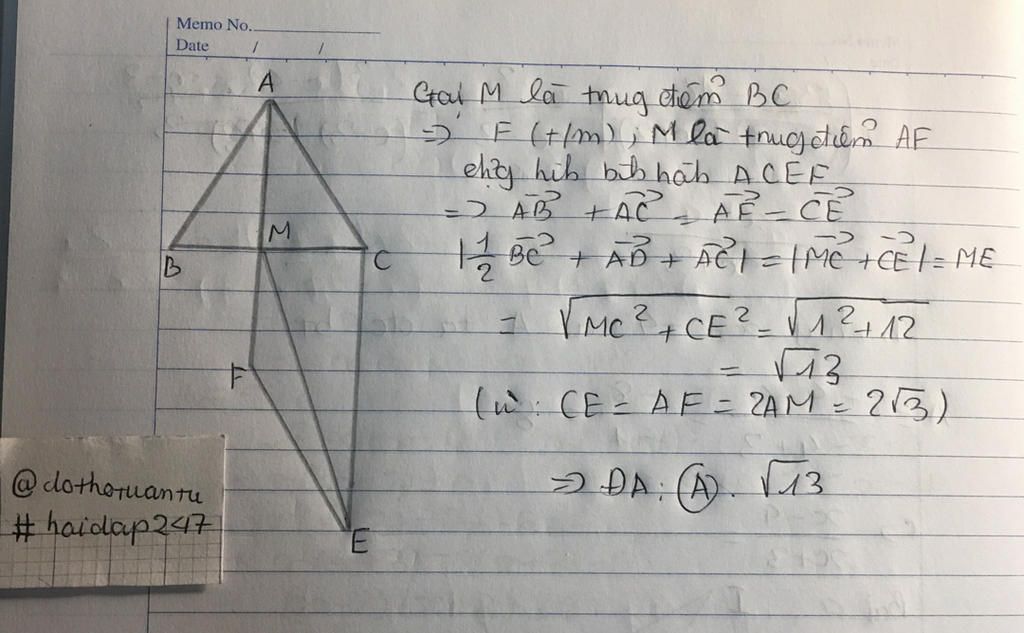 Memo No.
Date / /
A
B
M
C
F
E
Gọi M là trug điểm BC
=> F (t/m) ; M là trug điểm AF
hìh bìh hàh ACEF
=> \vec{AB} + \vec{AC} = \vec{AF} = \vec{CE}
|\frac{1}{2} \vec{BC} + \vec{AB} + \vec{AC}| = |\vec{MC} + \vec{CE}| = ME
= \sqrt{MC^2 + CE^2} = \sqrt{1^2 + 12}
= \sqrt{13}
(vì : CE = AF = 2AM = 2\sqrt{3})
=> ĐA : (A). \sqrt{13}
@dothotuantu
# haidap247